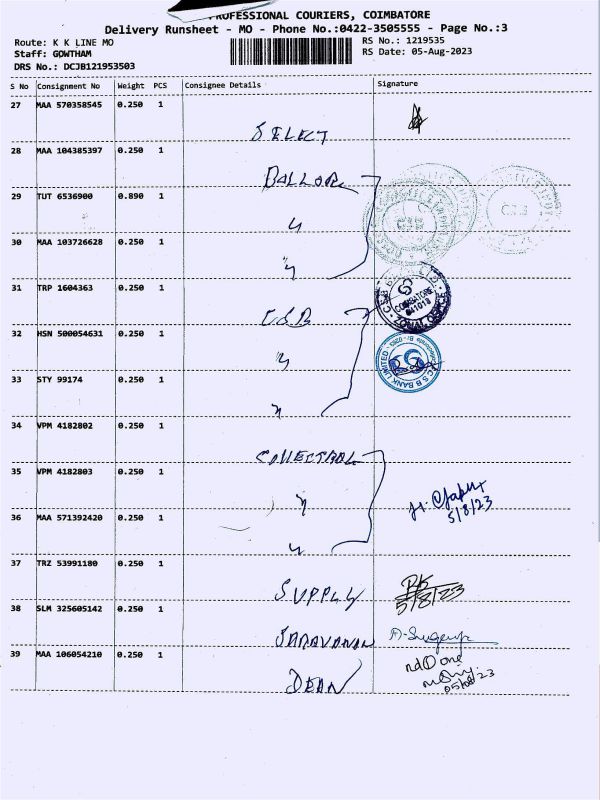 PROFESSIONAL COURIERS, COIMBATORE
Delivery Runsheet - MO - Phone No.:0422-3505555 - Page No.:3
Route: K K LINE MO
RS No.: 1219535
Staff: GOWTHAM
RS Date: 05-Aug-2023
DRS No.: DCJB121953503
S No Consignment No Weight PCS Consignee Details Signature
27 MAA 570358545 0.250 1
SELECT
28 MAA 104385397 0.250 1
29 TUT 6536900 0.890 1
30 MAA 103726628 0.250 1
31 TRP 1604363 0.250 1
CSB
COIMBATORE
641018
32 HSN 500054631 0.250 1
C S B BANK LIMITED
33 STY 99174 0.250 1
34 VPM 4182802 0.250 1
35 VPM 4182803 0.250 1
5/8/23
36 MAA 571392420 0.250 1
37 TRZ 53991180 0.250 1
SUPPLY
5/8/23
38 SLM 325605142 0.250 1
SARAVANAN
39 MAA 106054210 0.250 1
DEAN
05/08/23